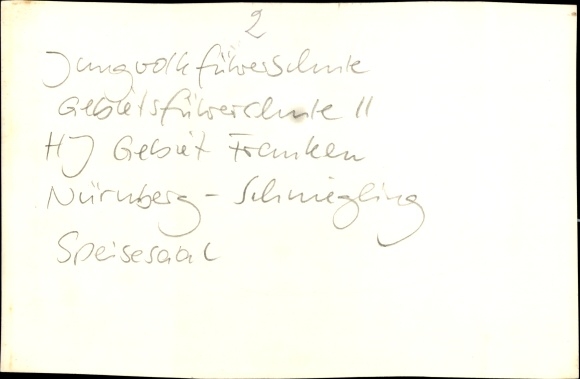 2
Jungvolkführerschule
Gebietsführerschule II
HJ Gebiet Franken
Nürnberg - Schniegling
Speisesaal